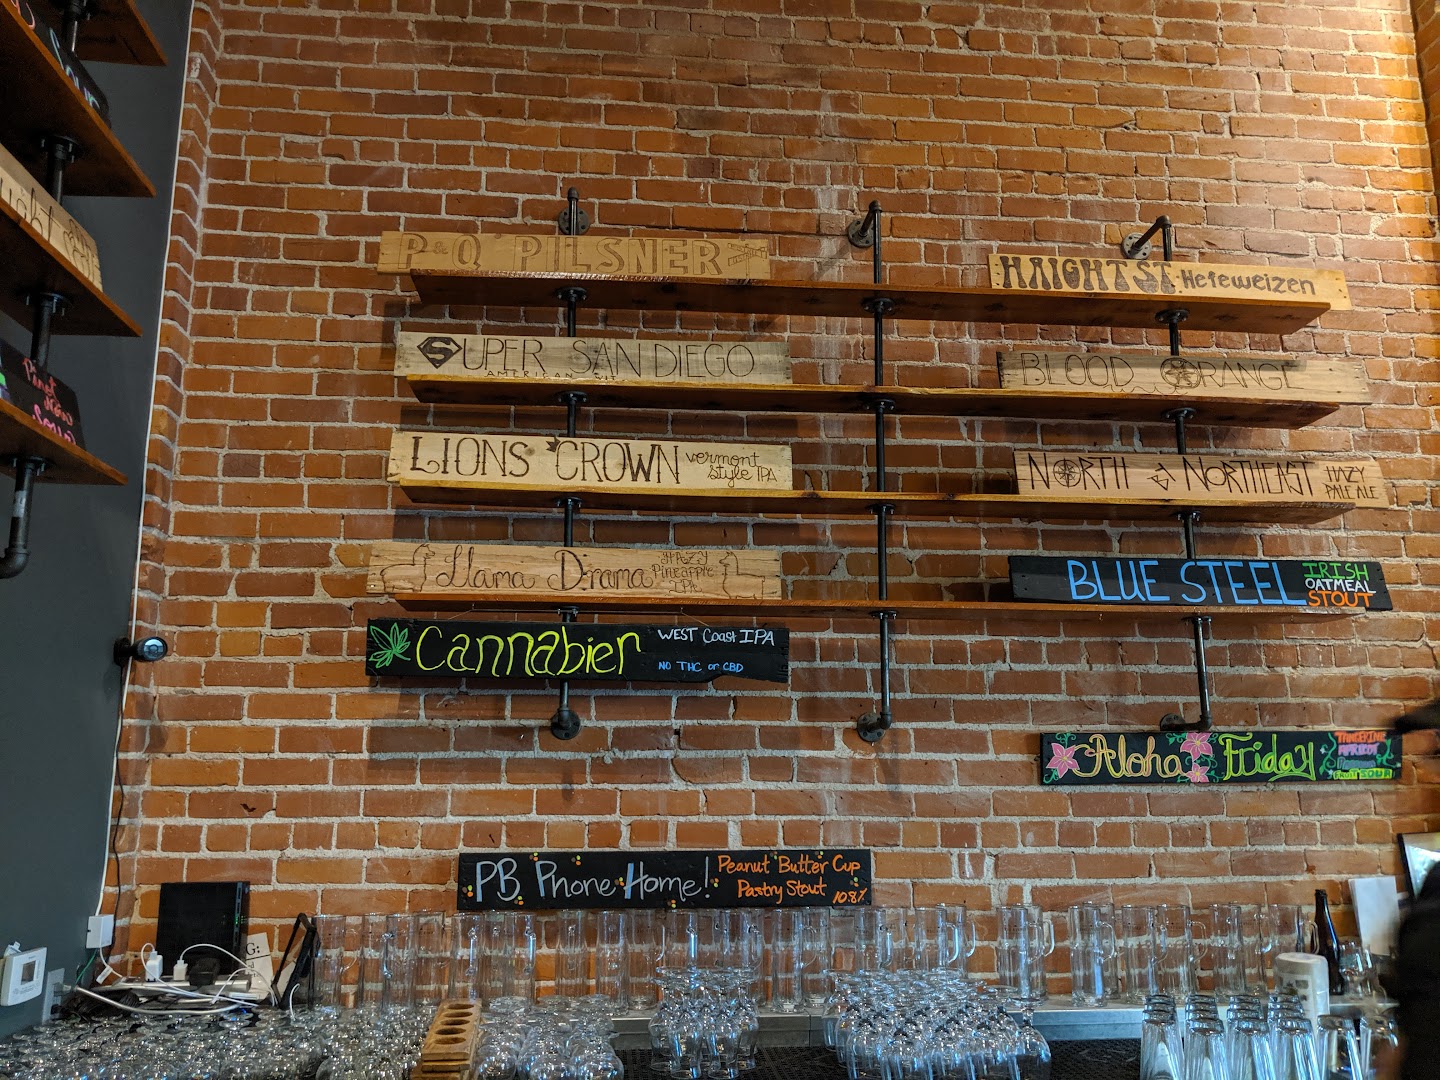 P & Q PILSNER
HAIGHT ST. Hefeweizen
SUPER SAN DIEGO
AMERICAN
BLOOD ORANGE
LIONS CROWN vermont
style IPA
NORTH & NORTHEAST HAZY
PALE ALE
Llama Drama HAZY
Pineapple
IPA
BLUE STEEL IRISH
OATMEAL
STOUT
Cannabier WEST Coast IPA
NO THC or CBD
Aloha Friday TANGERINE
APRICOT
FRUIT SOUR
PB Phone Home! Peanut Butter Cup
Pastry Stout
10.8%
Pinot
G: